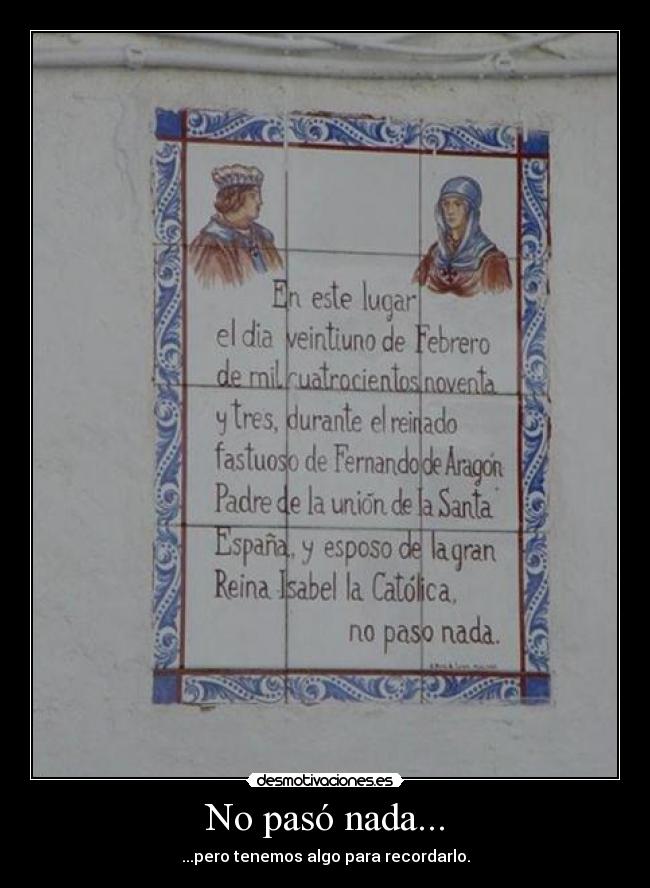 En este lugar
el dia veintiuno de Febrero
de mil cuatrocientos noventa
y tres, durante el reinado
fastuoso de Fernando de Aragón
Padre de la unión de la Santa
España, y esposo de la gran
Reina Isabel la Católica,
no paso nada.
desmotivaciones.es
No pasó nada...
...pero tenemos algo para recordarlo.